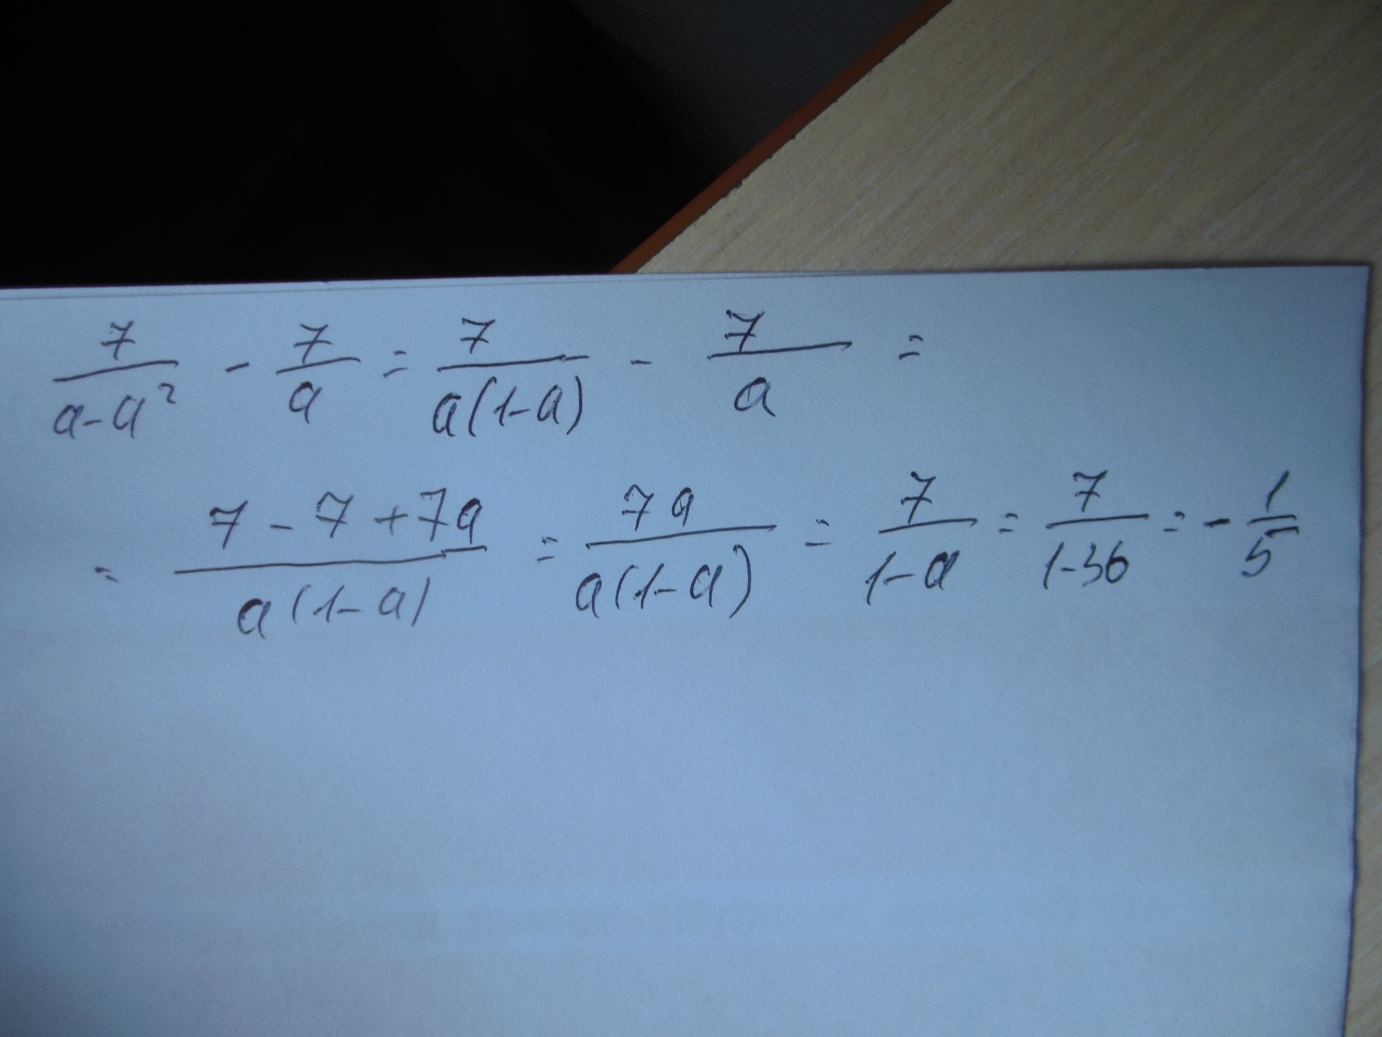 7/(a-a²) - 7/a = 7/(a(1-a)) - 7/a =
= (7-7+7a)/(a(1-a)) = 7a/(a(1-a)) = 7/(1-a) = 7/(1-36) = -1/5